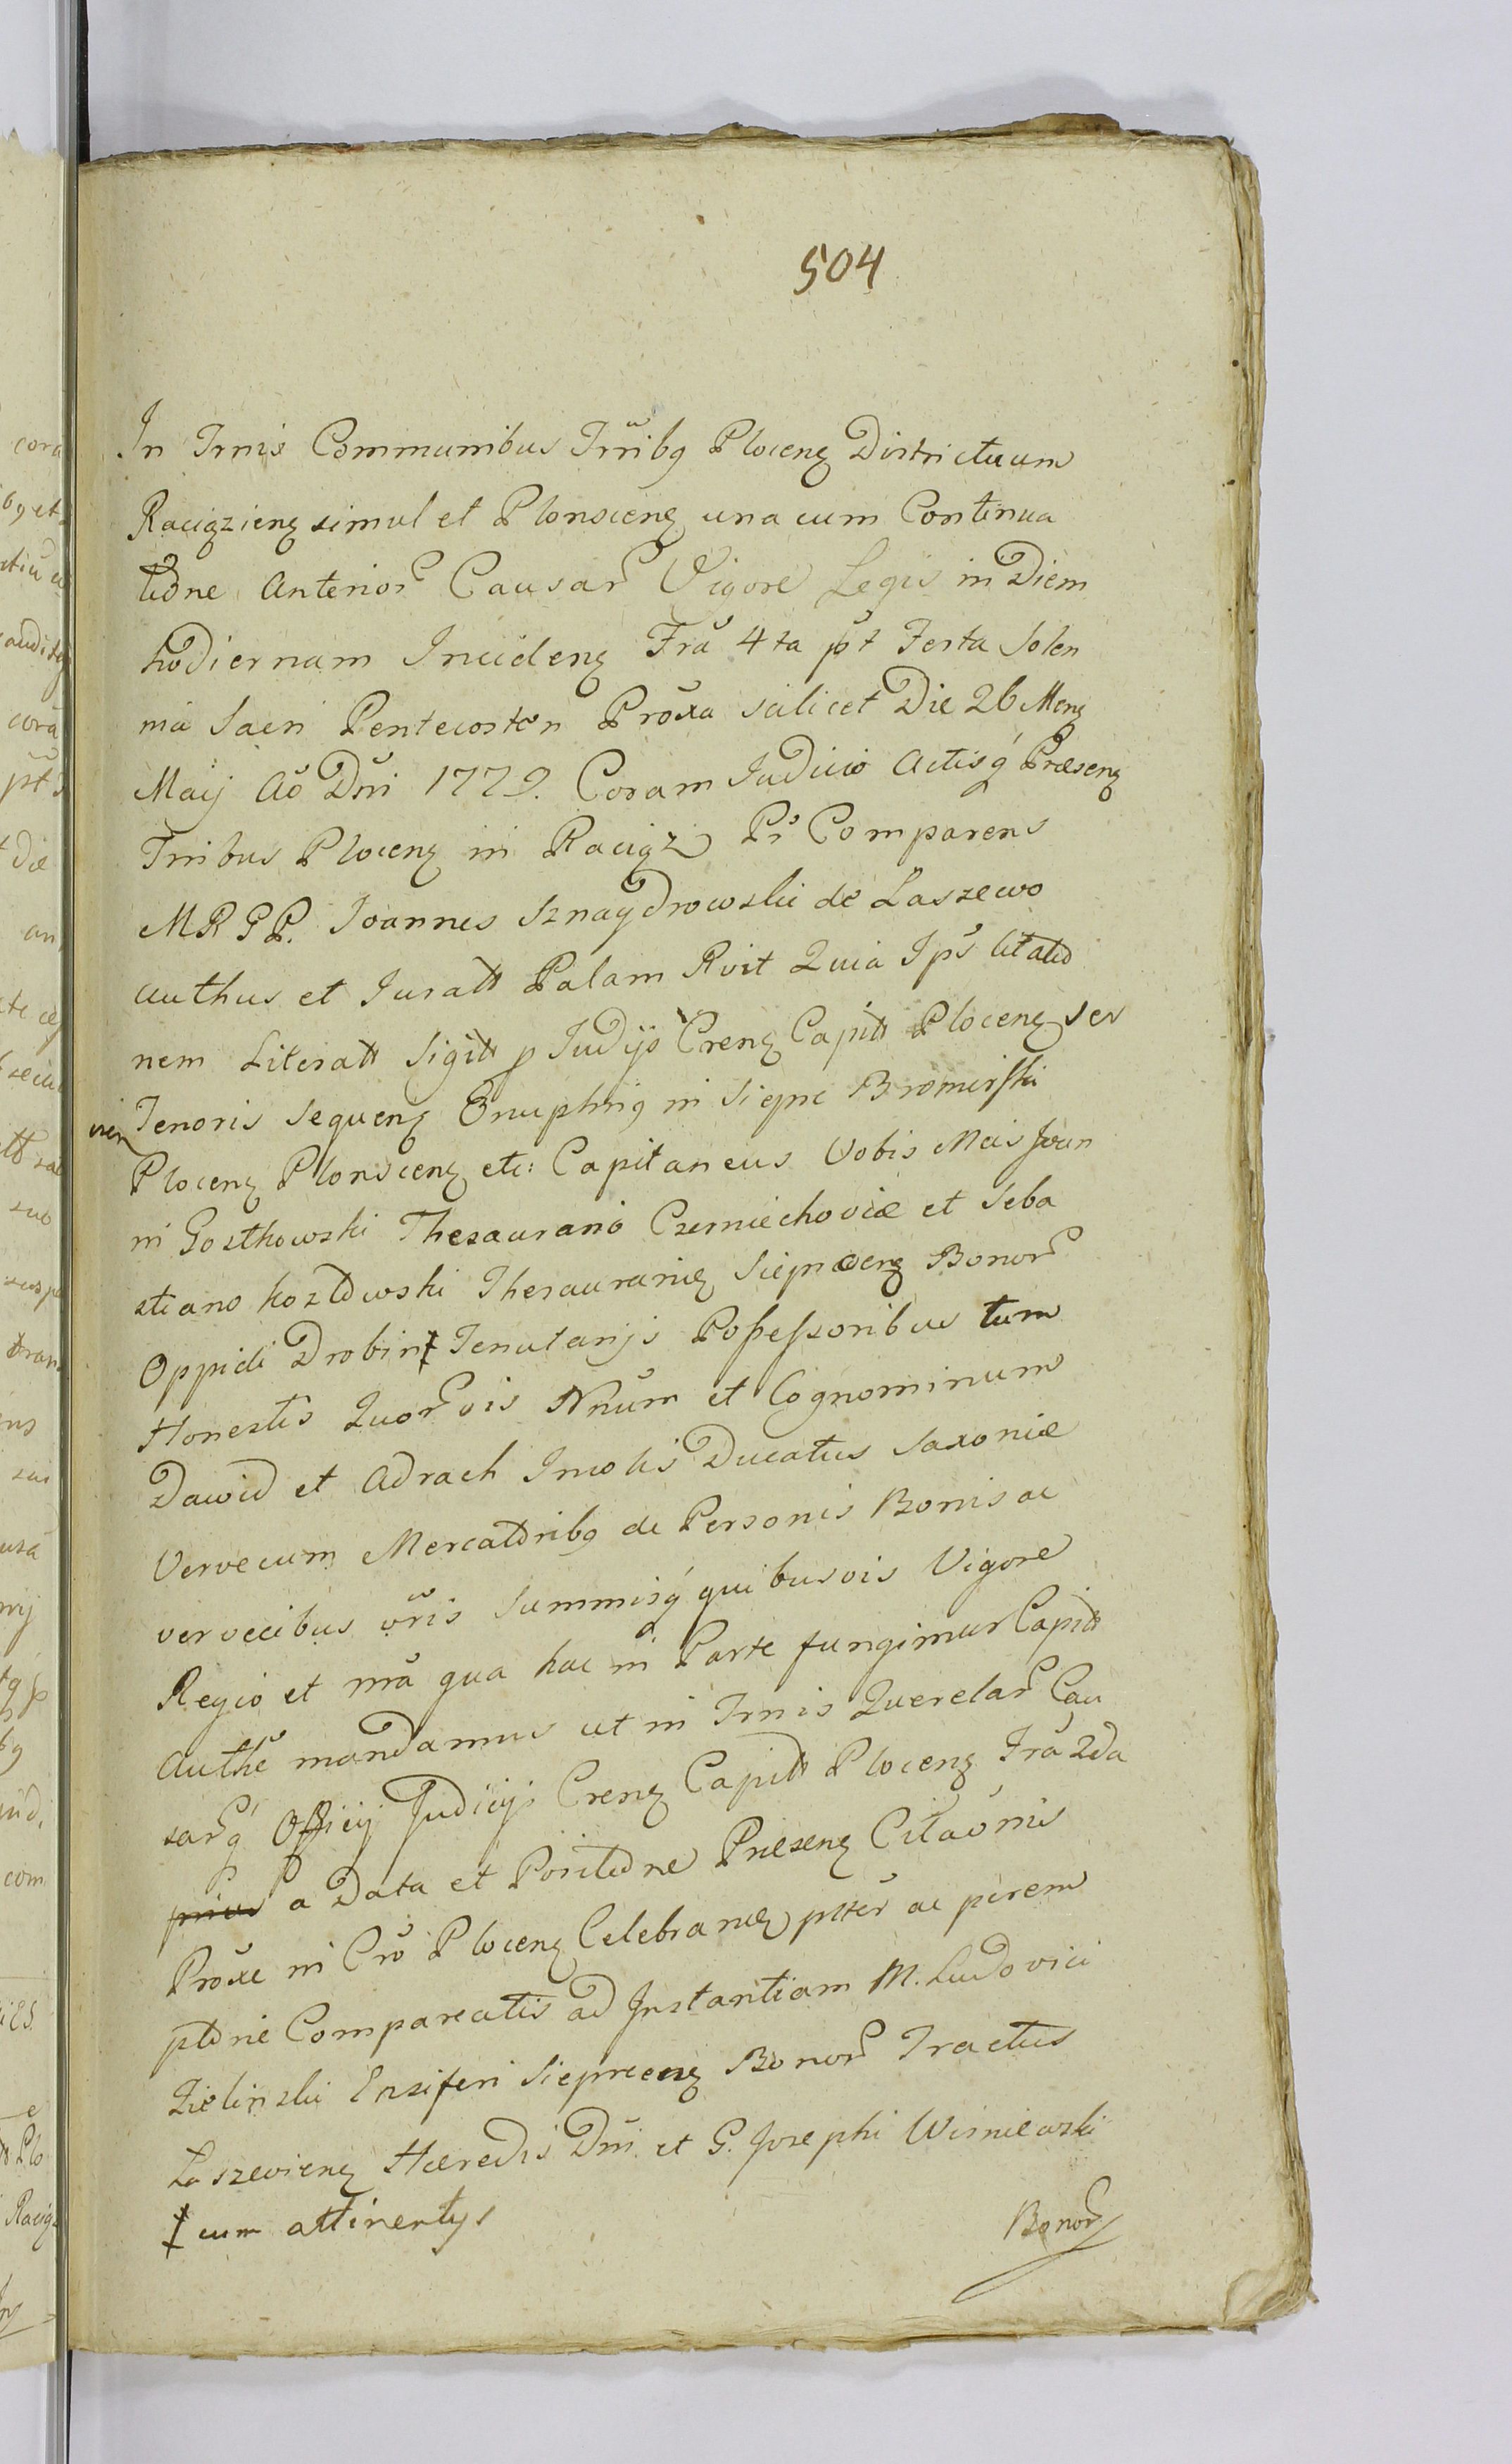 504
In Trnis Communibus Trribq Plocenz Districtuum
Raciązienz simul et Plonscenz una cum Continua
tione Anterior Causar Vigore Legis in Diem
hodiernam Incidenz Fra 4ta pt Festa Solen
nia Sacri Pentecosten Proxa scilicet Die 26 Menz
Maij Ao Dni 1779. Coram Judicio Actisq Præsenz
Trribus Plocenz in Raciąz Pr Comparens
MRGP. Joannes Sznaydrowski de Laszewo
Authus et Juratt Palam Rvit Quia Ips Citatio
nem Literatt Sigitt p Judijs Crenz Capitt Plocenz Ser
vien Tenoris Sequenz Onuphriq in Siepre Bromirski
Plocenz Plonscenz etc: Capitaneus Vobis Mcis Joan
ni Gostkowski Thesaurario Czerniechoviæ et Seba
stiano Kozłowski Thesaurariz Sieprcenz Bonor
Oppidi Drobin ‡ Tenutarijs Possessoribus tum
Honestis Quorvis Nnum et Cognominum
Dawid et Adrach Incolis Ducatus Saxoniæ
Vervecum Mercatoribq de Personis Bonis ac
vervecibus vris Summisq quibusvis Vigore
Regio et nra qua hac in Parte fungimur Capitt
Authe mandamus ut in Trnis Querelar Cau
sarq Officij Judicijs Crenz Capitt Plocenz Fra 2da
a Data et Positione Præsenz Citaonis
Proxe in Cro Plocenz Celebranz ptter ac perem
ptorie Compareatis ad Instantiam M. Ludovici
Zielinski Ensiferi Sieprcenz Bonor Tractus
Laszevienz Hæredis Dni et G. Josephi Wisniewski
‡ cum attinentijs
Bonor